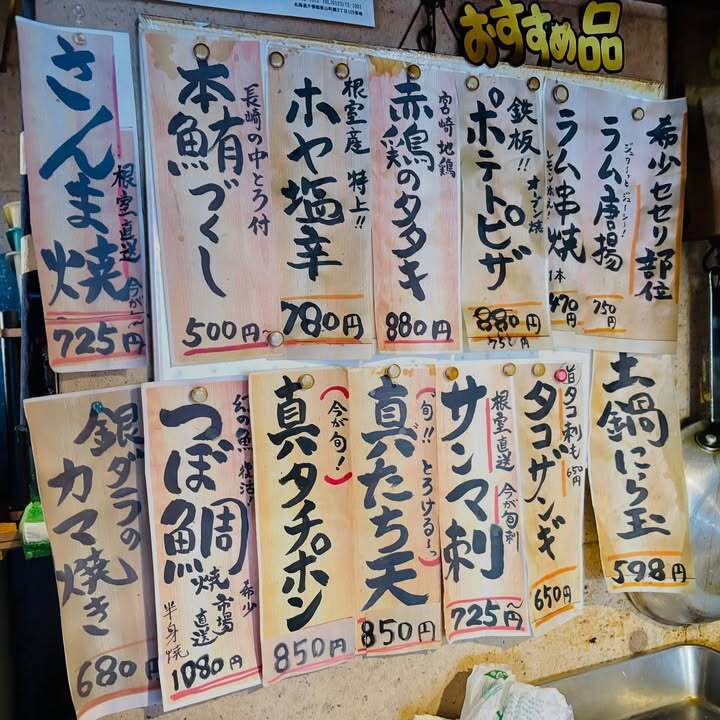 おすすめ品
希少セセリ部位
ジューシー!
ラム唐揚
750円
ラム串焼
1本
470円
鉄板!!
オーブン焼
ポテトピザ
880円
宮崎地鶏
赤鶏のタタキ
880円
根室産 特上!!
ホヤ塩辛
780円
長崎の中とろ付
本鮪づくし
500円
根室直送
今が〜
さんま焼
725円
土鍋にら玉
598円
旨タコ刺も
650円
タコザンギ
650円
根室直送
今が旬刺
サンマ刺
725円〜
(旬!! とろける〜っ)
真だち天
850円
(今が旬!)
真タチポン
850円
幻の魚 復活!
希少
つぼ鯛焼
市場直送
半身焼
1080円
銀ダラの
カマ焼き
680円